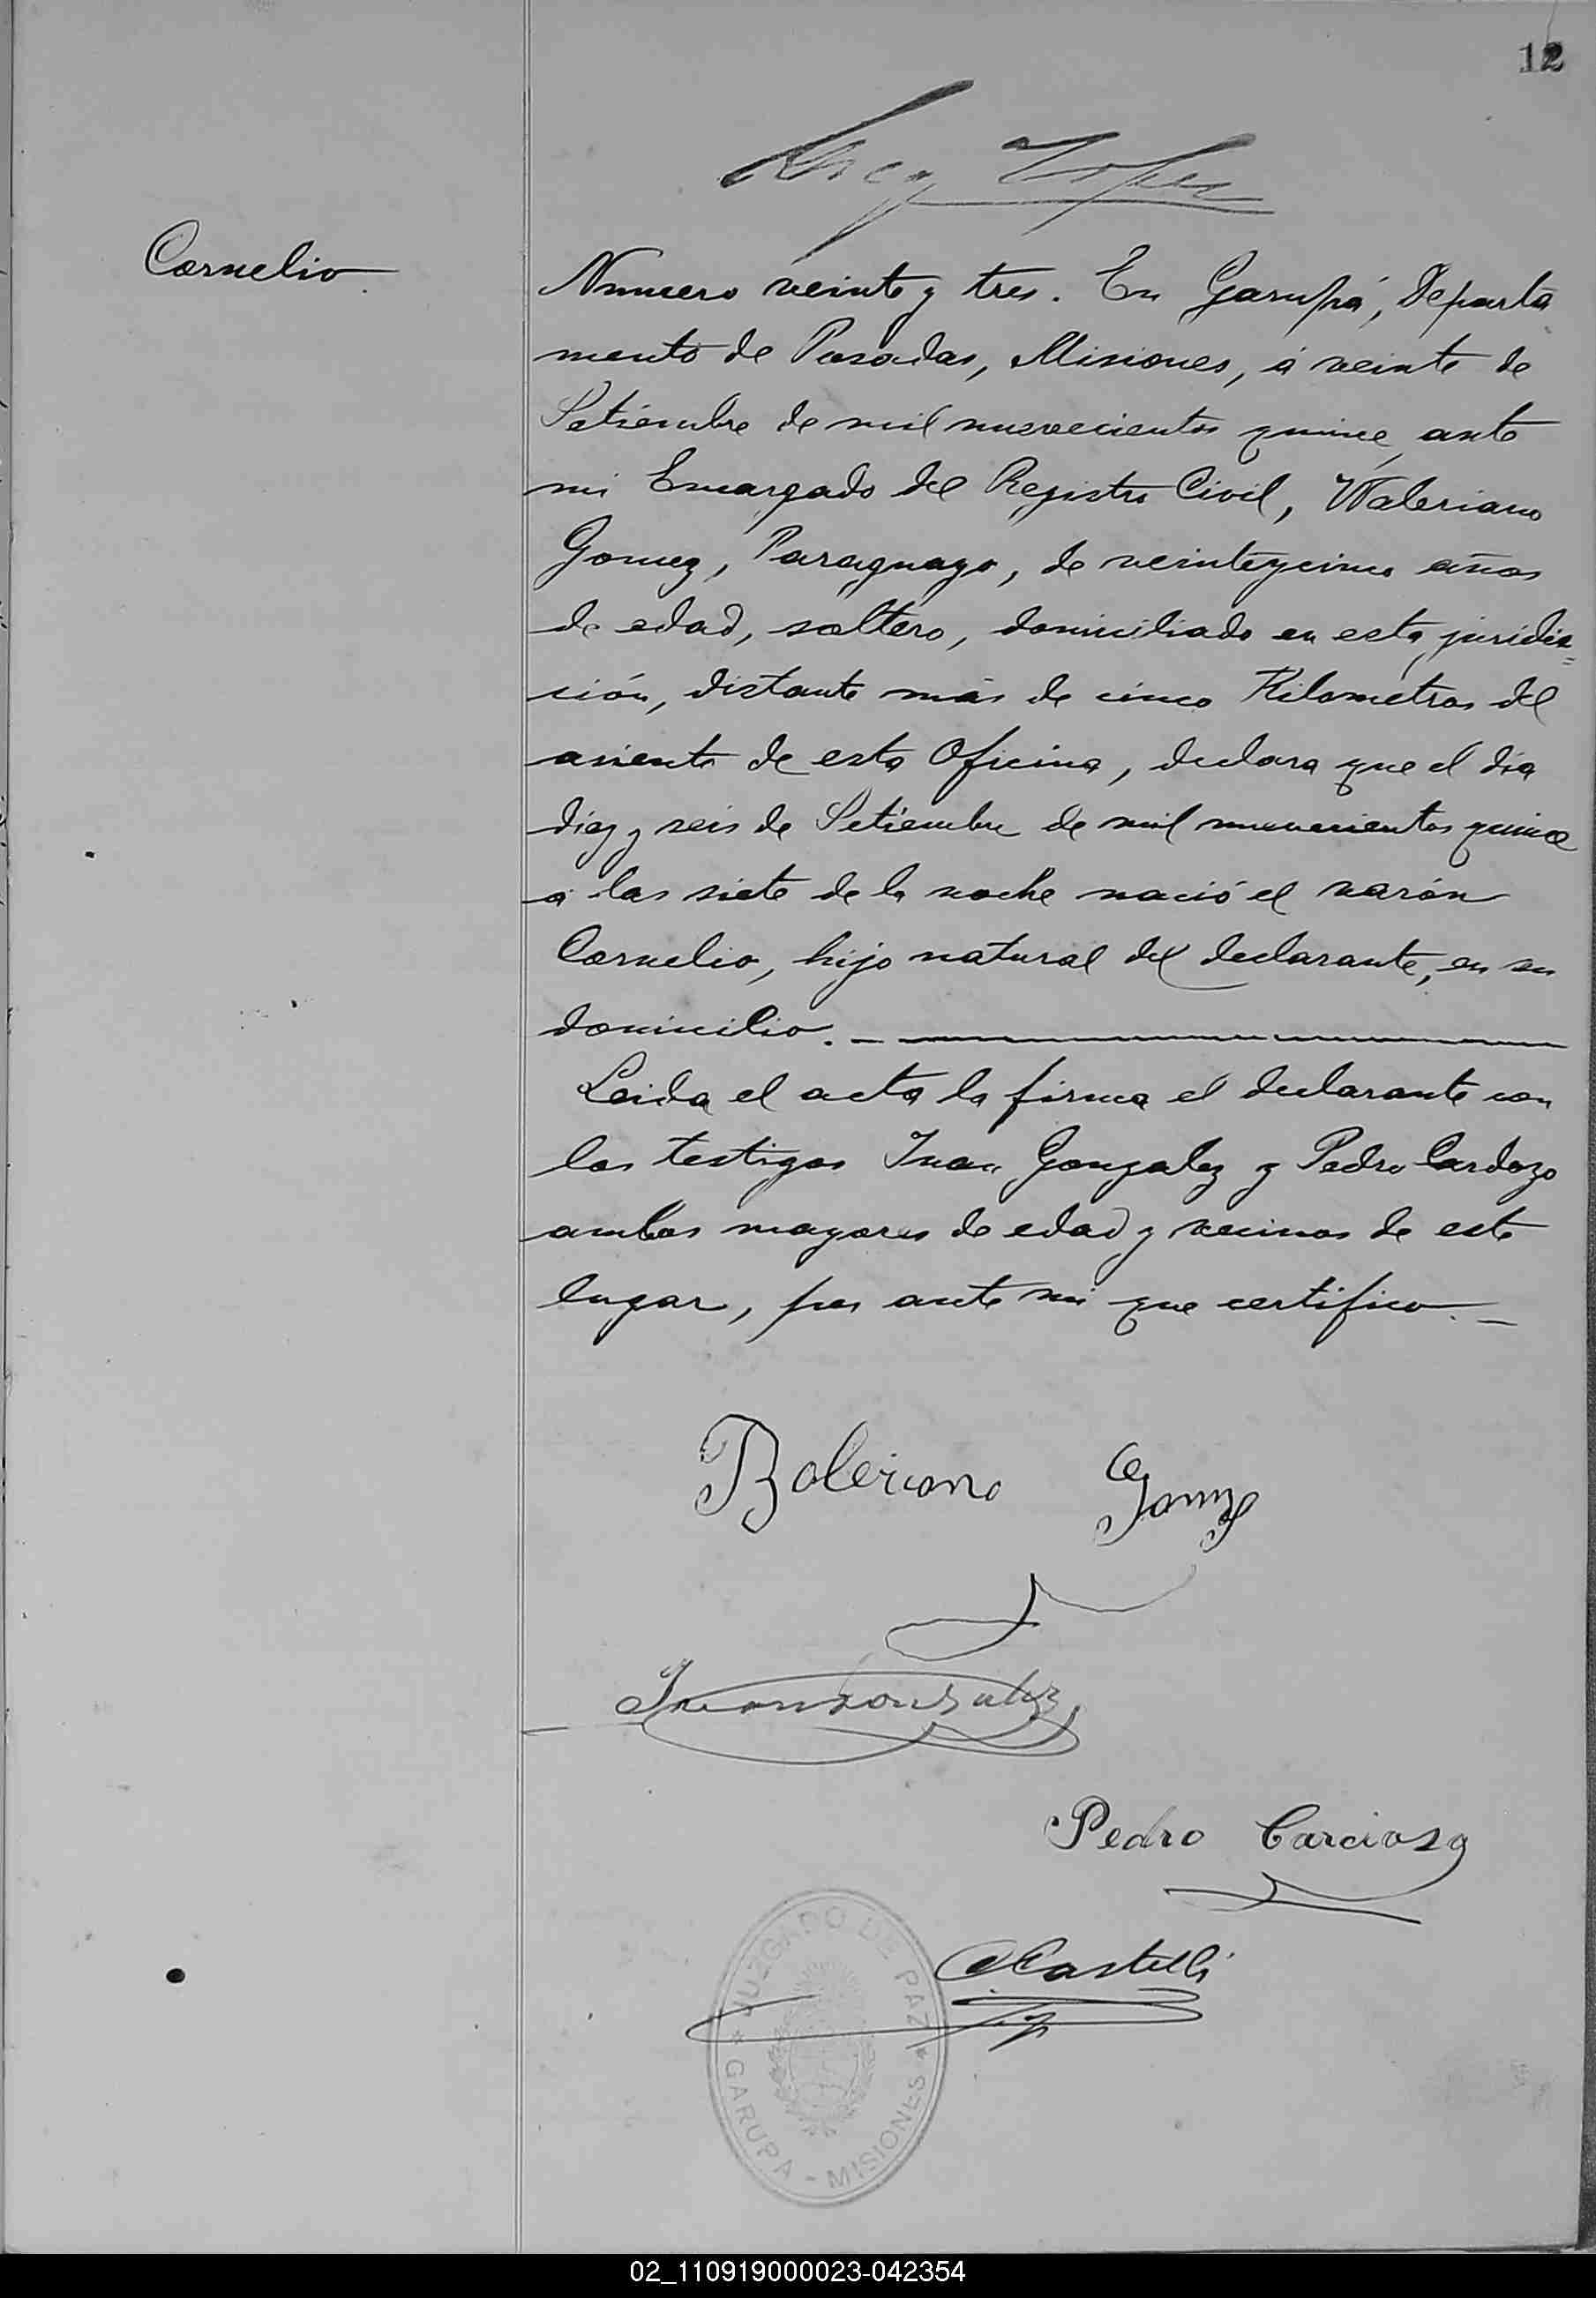 12
Lopez
Cornelio
Numero veinte y tres. En Garupá, Departa
mento de Posadas, Misiones, á veinte de
Setiembre de mil nuevecientos quince, ante
mi Encargado del Registro Civil, Waleriano
Gomez, Paraguayo, de veinteycinco años
de edad, soltero, domiciliado en esta juridic=
ción, distante más de cinco Kilometros del
asiento de esta Oficina, declara que el dia
diez y seis de Setiembre de mil nuevecientos quince
á las siete de la noche nació el varón
Cornelio, hijo natural del declarante, en su
domicilio.
Leida el acta la firma el declarante con
los testigos Juan Gonzalez y Pedro Cardozo
ambos mayores de edad y vecinos de este
lugar, por ante mi que certifico.
Boleriano Gomez
Juan Gonzalez
Pedro Cardoso
Castelli
JUZGADO DE PAZ
* GARUPA - MISIONES *
02_110919000023-042354